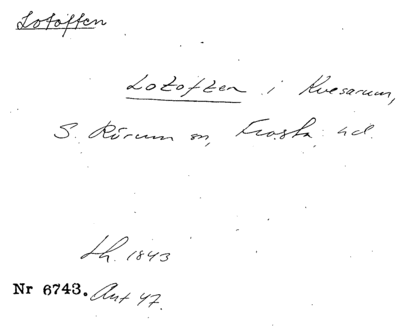 Lotoften
Lotoften i Kvesarum,
S. Rörum sn, Frosta hd.
Lh. 1843
Nr 6743. Ant 47.